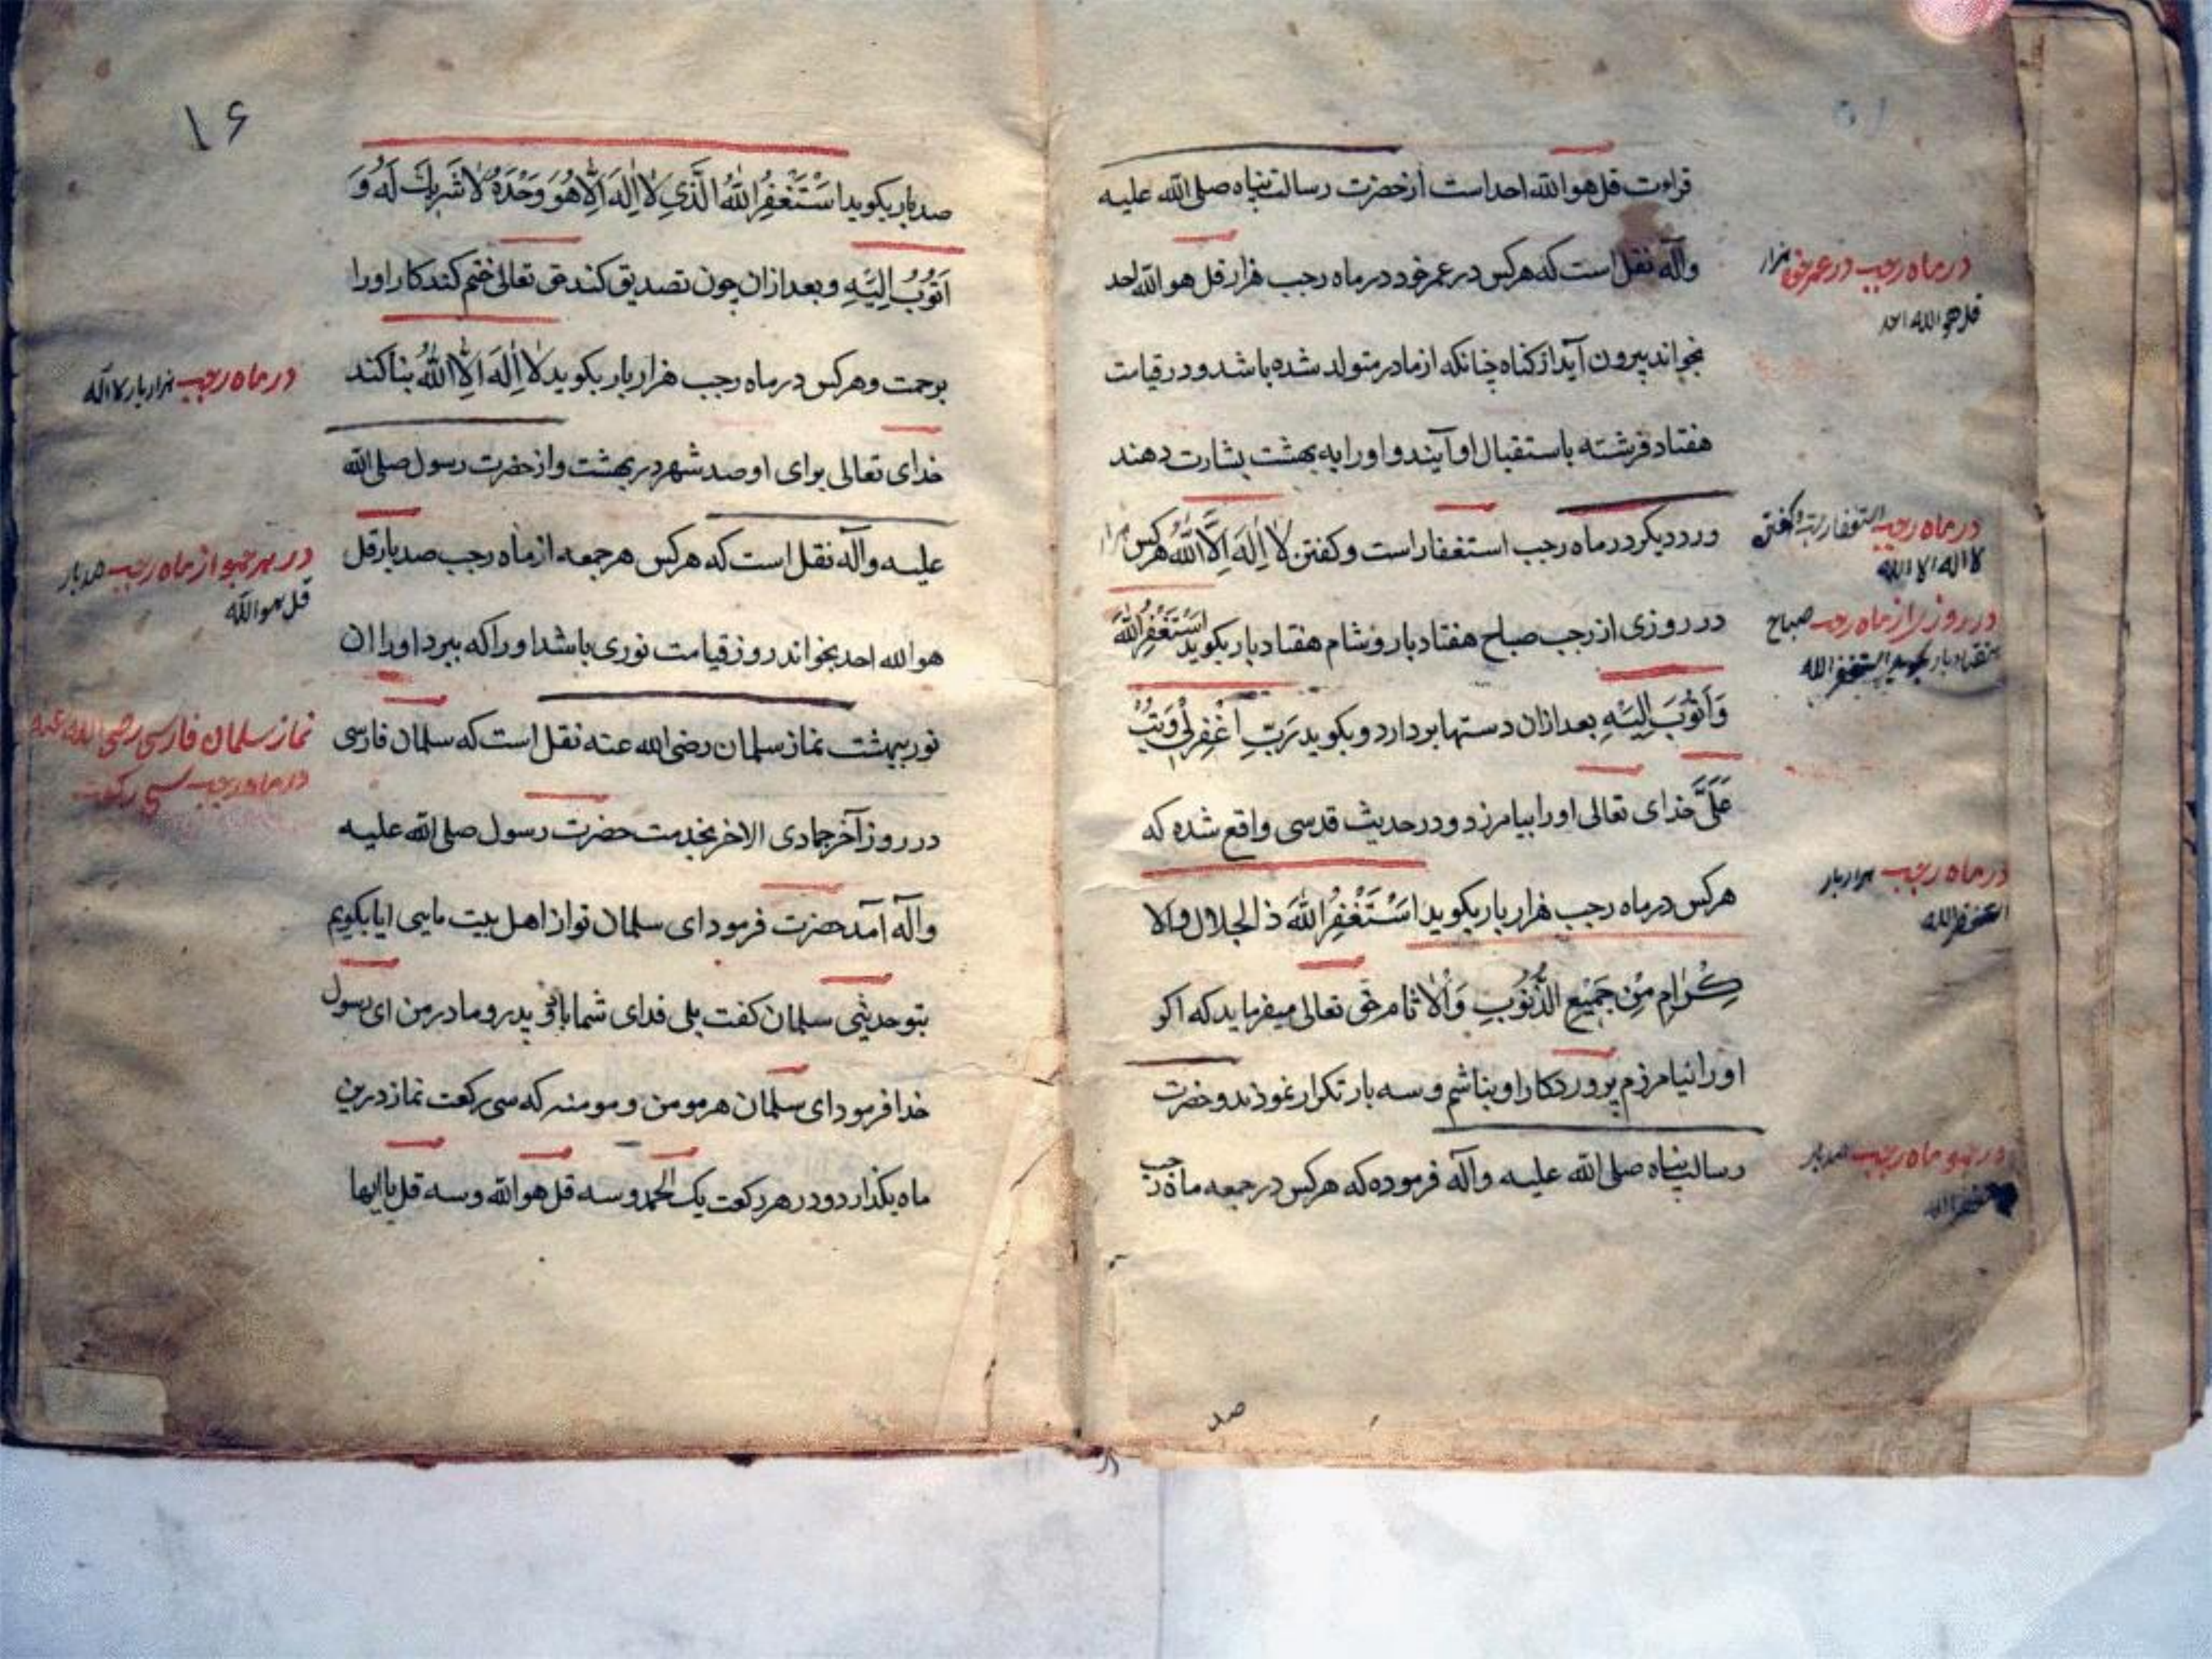 قراءت قل هو الله احد است از حضرت رسالت پناه صلی الله علیه
وآله نقل است که هرکس در عمر خود در ماه رجب هزار قل هو الله احد
بخواند بیرون آید از کناه چنانکه از مادر متولد شده باشد و در قیامت
هفتاد فرشته باستقبال او آیند و او را به بهشت بشارت دهند
ورد دیکر در ماه رجب استغفار است و کفتن لَا اِلَهَ اِلَّا اللّٰهُ هرکس
در روزی از رجب صباح هفتاد بار و شام هفتاد بار بکوید اَسْتَغْفِرُ اللّٰهَ
وَاَتُوْبُ اِلَیْهِ بعد از ان دستها بردارد و بکوید رَبِّ اغْفِرْلِی وَتُبْ
عَلَیَّ خدای تعالی او را بیامرزد و در حدیث قدسی واقع شده که
هرکس در ماه رجب هزار بار بکوید اَسْتَغْفِرُ اللّٰهَ ذالجلال والا
کْرَامِ مِنْ جَمِیْعِ الذُّنُوْبِ وَالْاٰثَام حق تعالی میفرماید که اکر
او را نیامرزم پروردکار او نباشم و سه بار تکرار نمودند و حضرت
رسالت پناه صلی الله علیه وآله فرموده که هرکس در جمعه ماه رجب
در ماه رجب در عمر خود هزار
قل هو الله احد
در ماه رجب استغفار و کفتن
لا اله الا الله
در روز از ماه رجب صباح
هفتاد بار بکوید استغفر الله
در ماه رجب هزار بار
استغفر الله
در ماه رجب صد بار
استغفر الله
صد
۱۶
صد بار بکوید اَسْتَغْفِرُ اللّٰهَ الَّذِی لَا اِلَهَ اِلَّا هُوَ وَحْدَهُ لَا شَرِیكَ لَهُ وَ
اَتُوْبُ اِلَیْهِ و بعد از ان چون تصدیق کند حق تعالی ختم کند کار او را
برحمت و هرکس در ماه رجب هزار بار بکوید لَا اِلَهَ اِلَّا اللّٰهُ بنا کند
خدای تعالی برای او صد شهر در بهشت و از حضرت رسول صلی الله
علیه وآله نقل است که هرکس هر جمعه از ماه رجب صد بار قل
هو الله احد بخواند روز قیامت نوری باشد او را که ببرد او را ان
نور ببهشت نماز سلمان رضی الله عنه نقل است که سلمان فارسی
در روز آخر جمادی الاخر بخدمت حضرت رسول صلی الله علیه
وآله آمد حضرت فرمود ای سلمان تو از اهل بیت مایی ایا بکویم
بتو حدیثی سلمان کفت بلی فدای شما باد پدر و مادر من ای رسول
خدا فرمود ای سلمان هر مومن و مومنه که سی رکعت نماز درین
ماه بکذارد و در هر رکعت یک الحمد و سه قل هو الله و سه قل یا ایها
در ماه رجب هزار بار لا اله
در هر جمعه از ماه رجب صد بار
قل هو الله
نماز سلمان فارسی رضی الله عنه
در ماه رجب سی رکعت